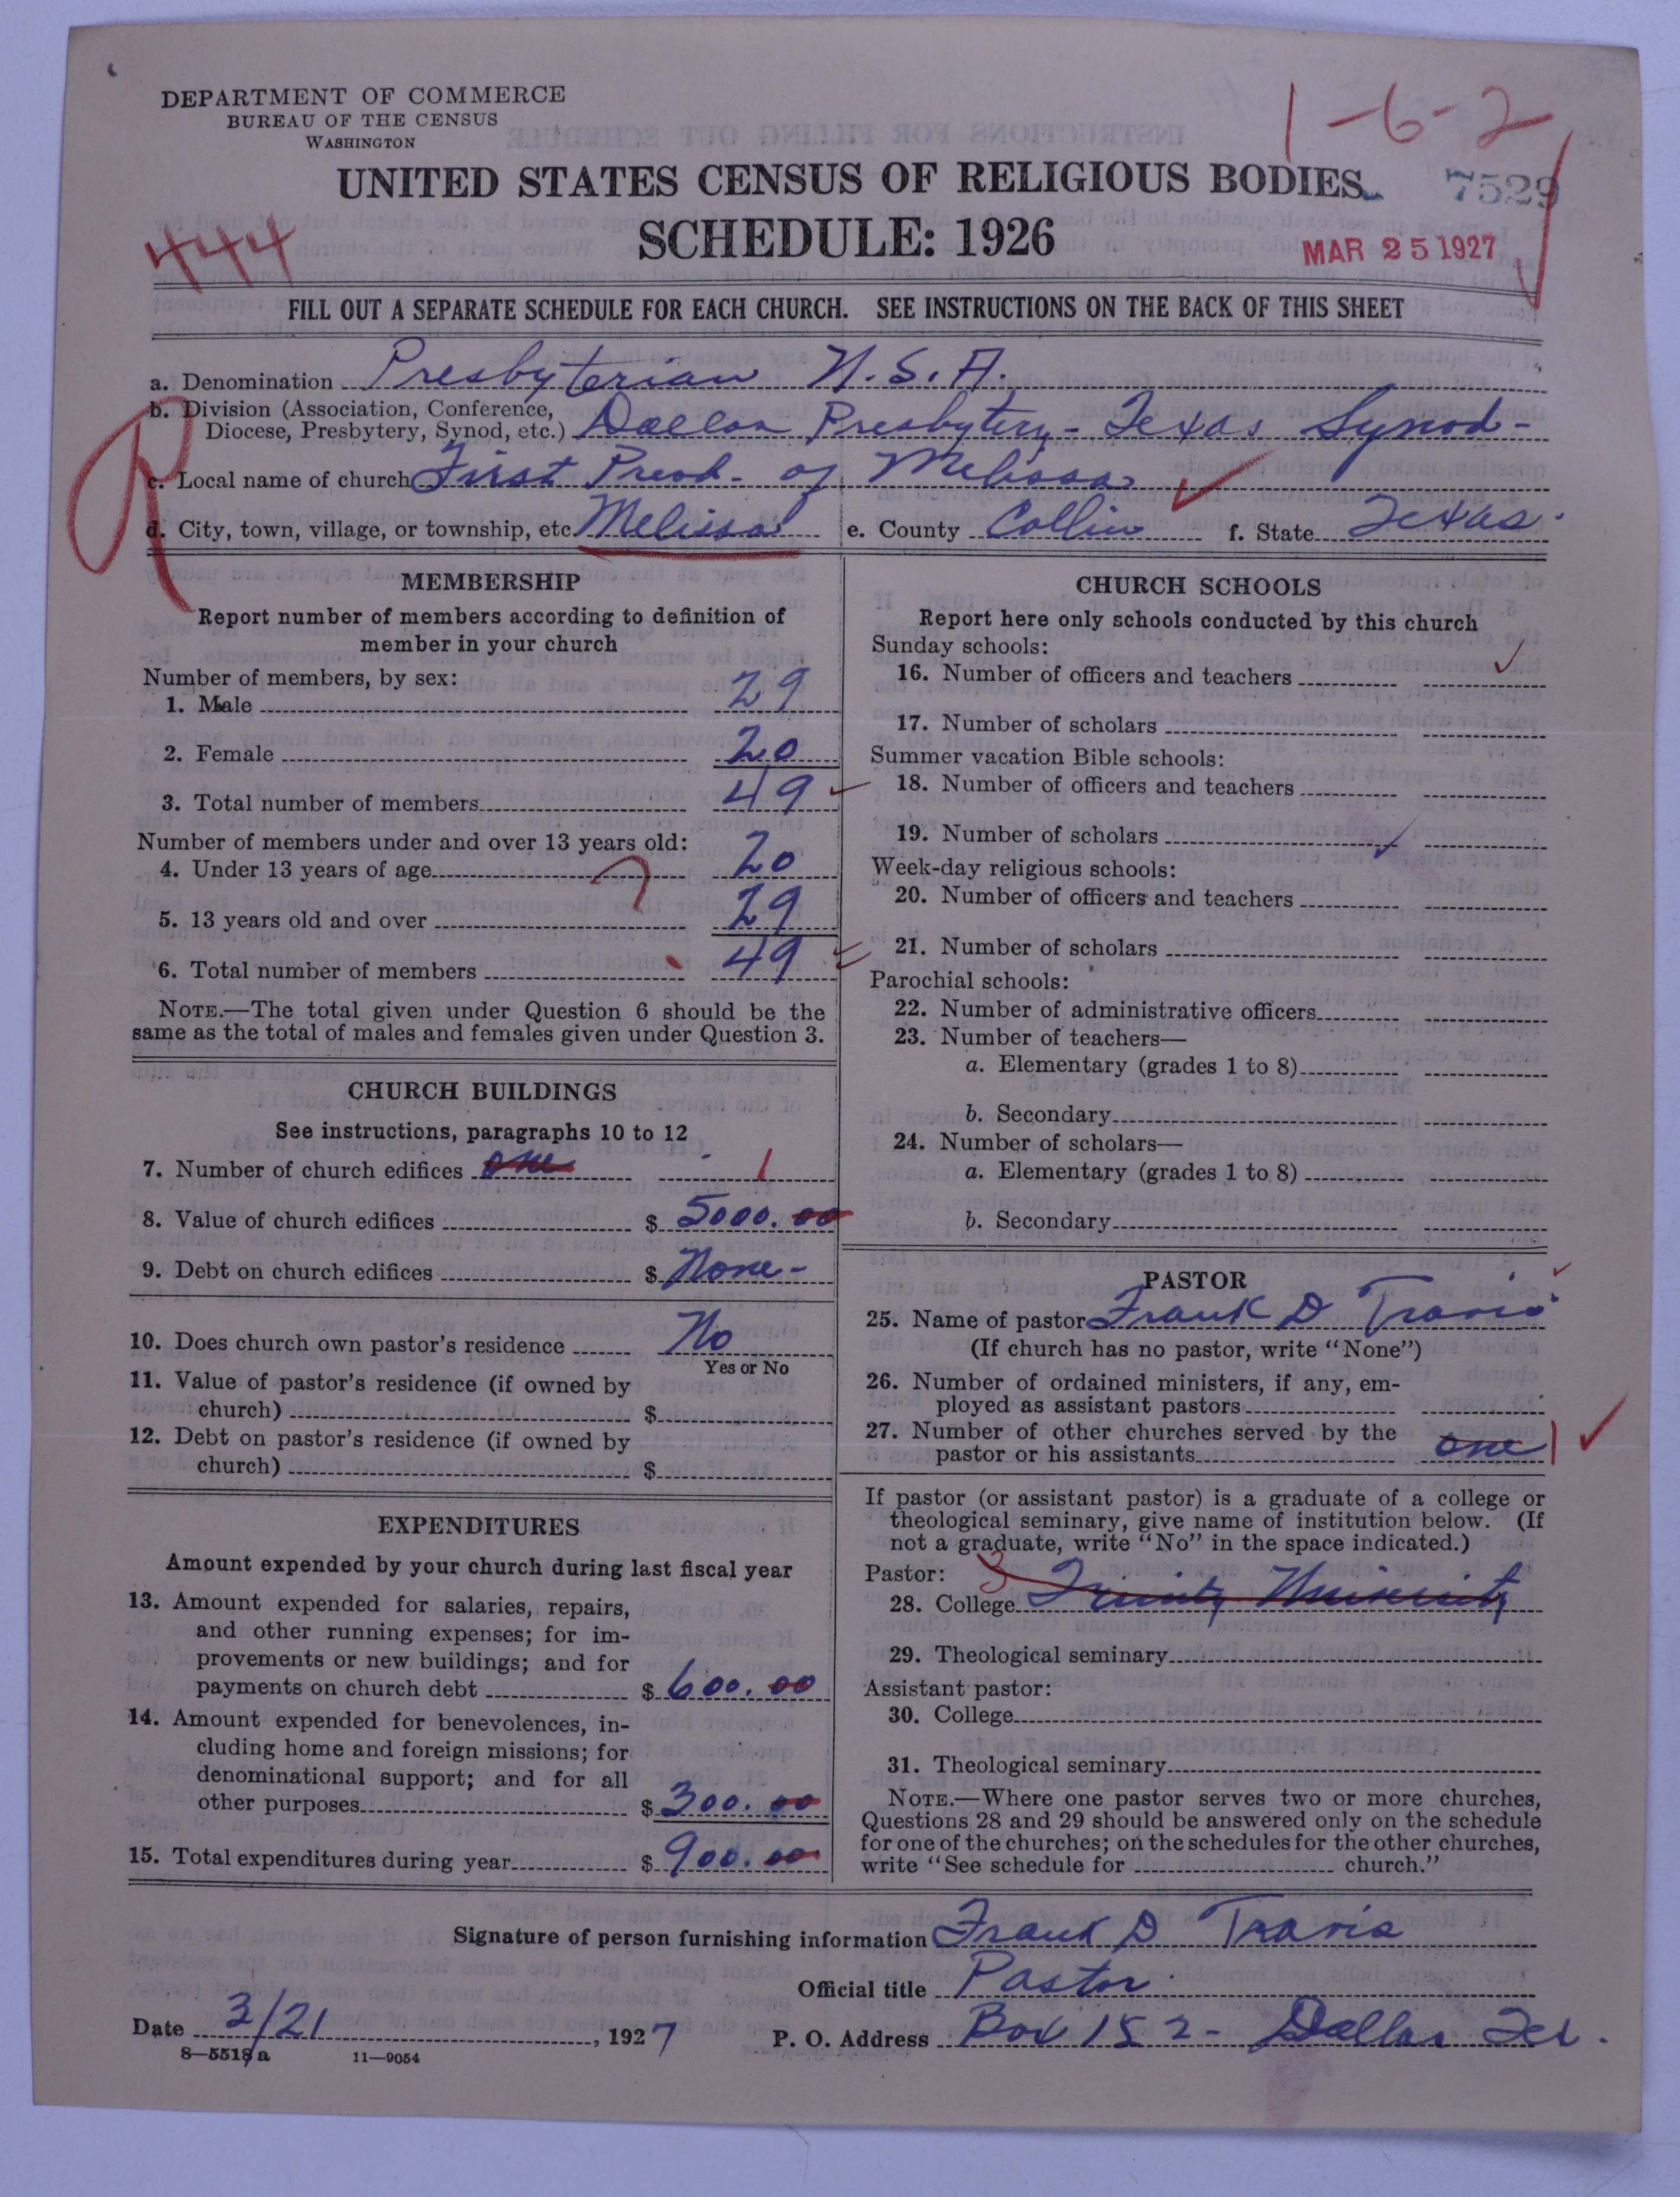 DEPARTMENT OF COMMERCE
BUREAU OF THE CENSUS
WASHINGTON
1-6-2
UNITED STATES CENSUS OF RELIGIOUS BODIES
7529
SCHEDULE: 1926
444
MAR 25 1927
FILL OUT A SEPARATE SCHEDULE FOR EACH CHURCH. SEE INSTRUCTIONS ON THE BACK OF THIS SHEET
a. Denomination Presbyterian U.S.A.
b. Division (Association, Conference,
Diocese, Presbytery, Synod, etc.) Dallas Presbytery - Texas Synod -
c. Local name of church First Presb. of Melissa
d. City, town, village, or township, etc. Melissa e. County Collin f. State Texas.
MEMBERSHIP
Report number of members according to definition of
member in your church
Number of members, by sex:
1. Male 29
2. Female 20
3. Total number of members 49
Number of members under and over 13 years old:
4. Under 13 years of age 20
5. 13 years old and over 29
6. Total number of members 49
NOTE.—The total given under Question 6 should be the
same as the total of males and females given under Question 3.
CHURCH BUILDINGS
See instructions, paragraphs 10 to 12
7. Number of church edifices one 1
8. Value of church edifices $ 5000.00
9. Debt on church edifices $ None -
10. Does church own pastor's residence No
Yes or No
11. Value of pastor's residence (if owned by
church) $
12. Debt on pastor's residence (if owned by
church) $
EXPENDITURES
Amount expended by your church during last fiscal year
13. Amount expended for salaries, repairs,
and other running expenses; for im-
provements or new buildings; and for
payments on church debt $ 600.00
14. Amount expended for benevolences, in-
cluding home and foreign missions; for
denominational support; and for all
other purposes $ 300.00
15. Total expenditures during year $ 900.00
CHURCH SCHOOLS
Report here only schools conducted by this church
Sunday schools:
16. Number of officers and teachers
17. Number of scholars
Summer vacation Bible schools:
18. Number of officers and teachers
19. Number of scholars
Week-day religious schools:
20. Number of officers and teachers
21. Number of scholars
Parochial schools:
22. Number of administrative officers
23. Number of teachers—
a. Elementary (grades 1 to 8)
b. Secondary
24. Number of scholars—
a. Elementary (grades 1 to 8)
b. Secondary
PASTOR
25. Name of pastor Frank D Travis
(If church has no pastor, write "None")
26. Number of ordained ministers, if any, em-
ployed as assistant pastors
27. Number of other churches served by the
pastor or his assistants one 1
If pastor (or assistant pastor) is a graduate of a college or
theological seminary, give name of institution below. (If
not a graduate, write "No" in the space indicated.)
Pastor: 3
28. College Trinity University
29. Theological seminary
Assistant pastor:
30. College
31. Theological seminary
NOTE.—Where one pastor serves two or more churches,
Questions 28 and 29 should be answered only on the schedule
for one of the churches; on the schedules for the other churches,
write "See schedule for church."
Signature of person furnishing information Frank D Travis
Official title Pastor
Date 3/21, 1927 P. O. Address Box 152 - Dallas Tex.
8—5518a 11—9054